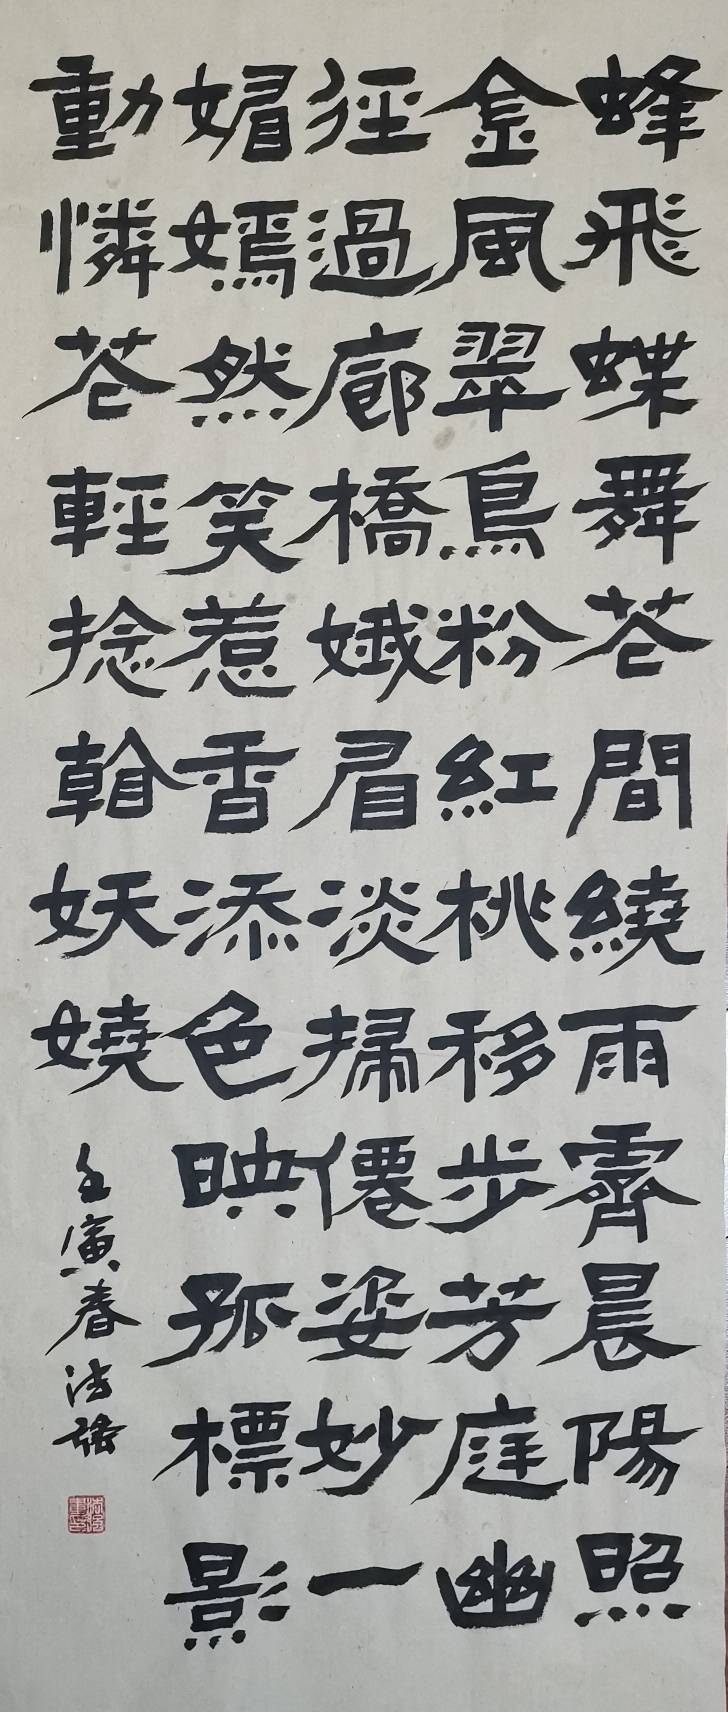 蜂飛蝶舞苍間繞雨霽晨陽照
金風翠鳥粉紅桃移步芳庭幽
徑過廊橋娥眉淡掃僊姿妙一
媚嫣然笑惹香添色映孤標影
動憐苍輕捻翰妖嬈
壬寅春